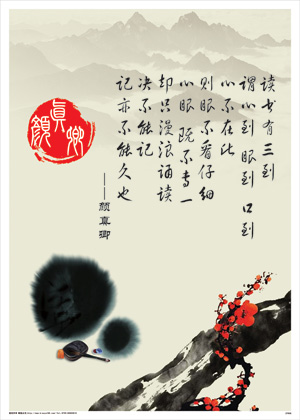 读书有三到
谓心到 眼到 口到
心不在此
则眼不看仔细
心眼既不专一
却只漫浪诵读
决不能记
记亦不能久也
——颜真卿
顏眞卿